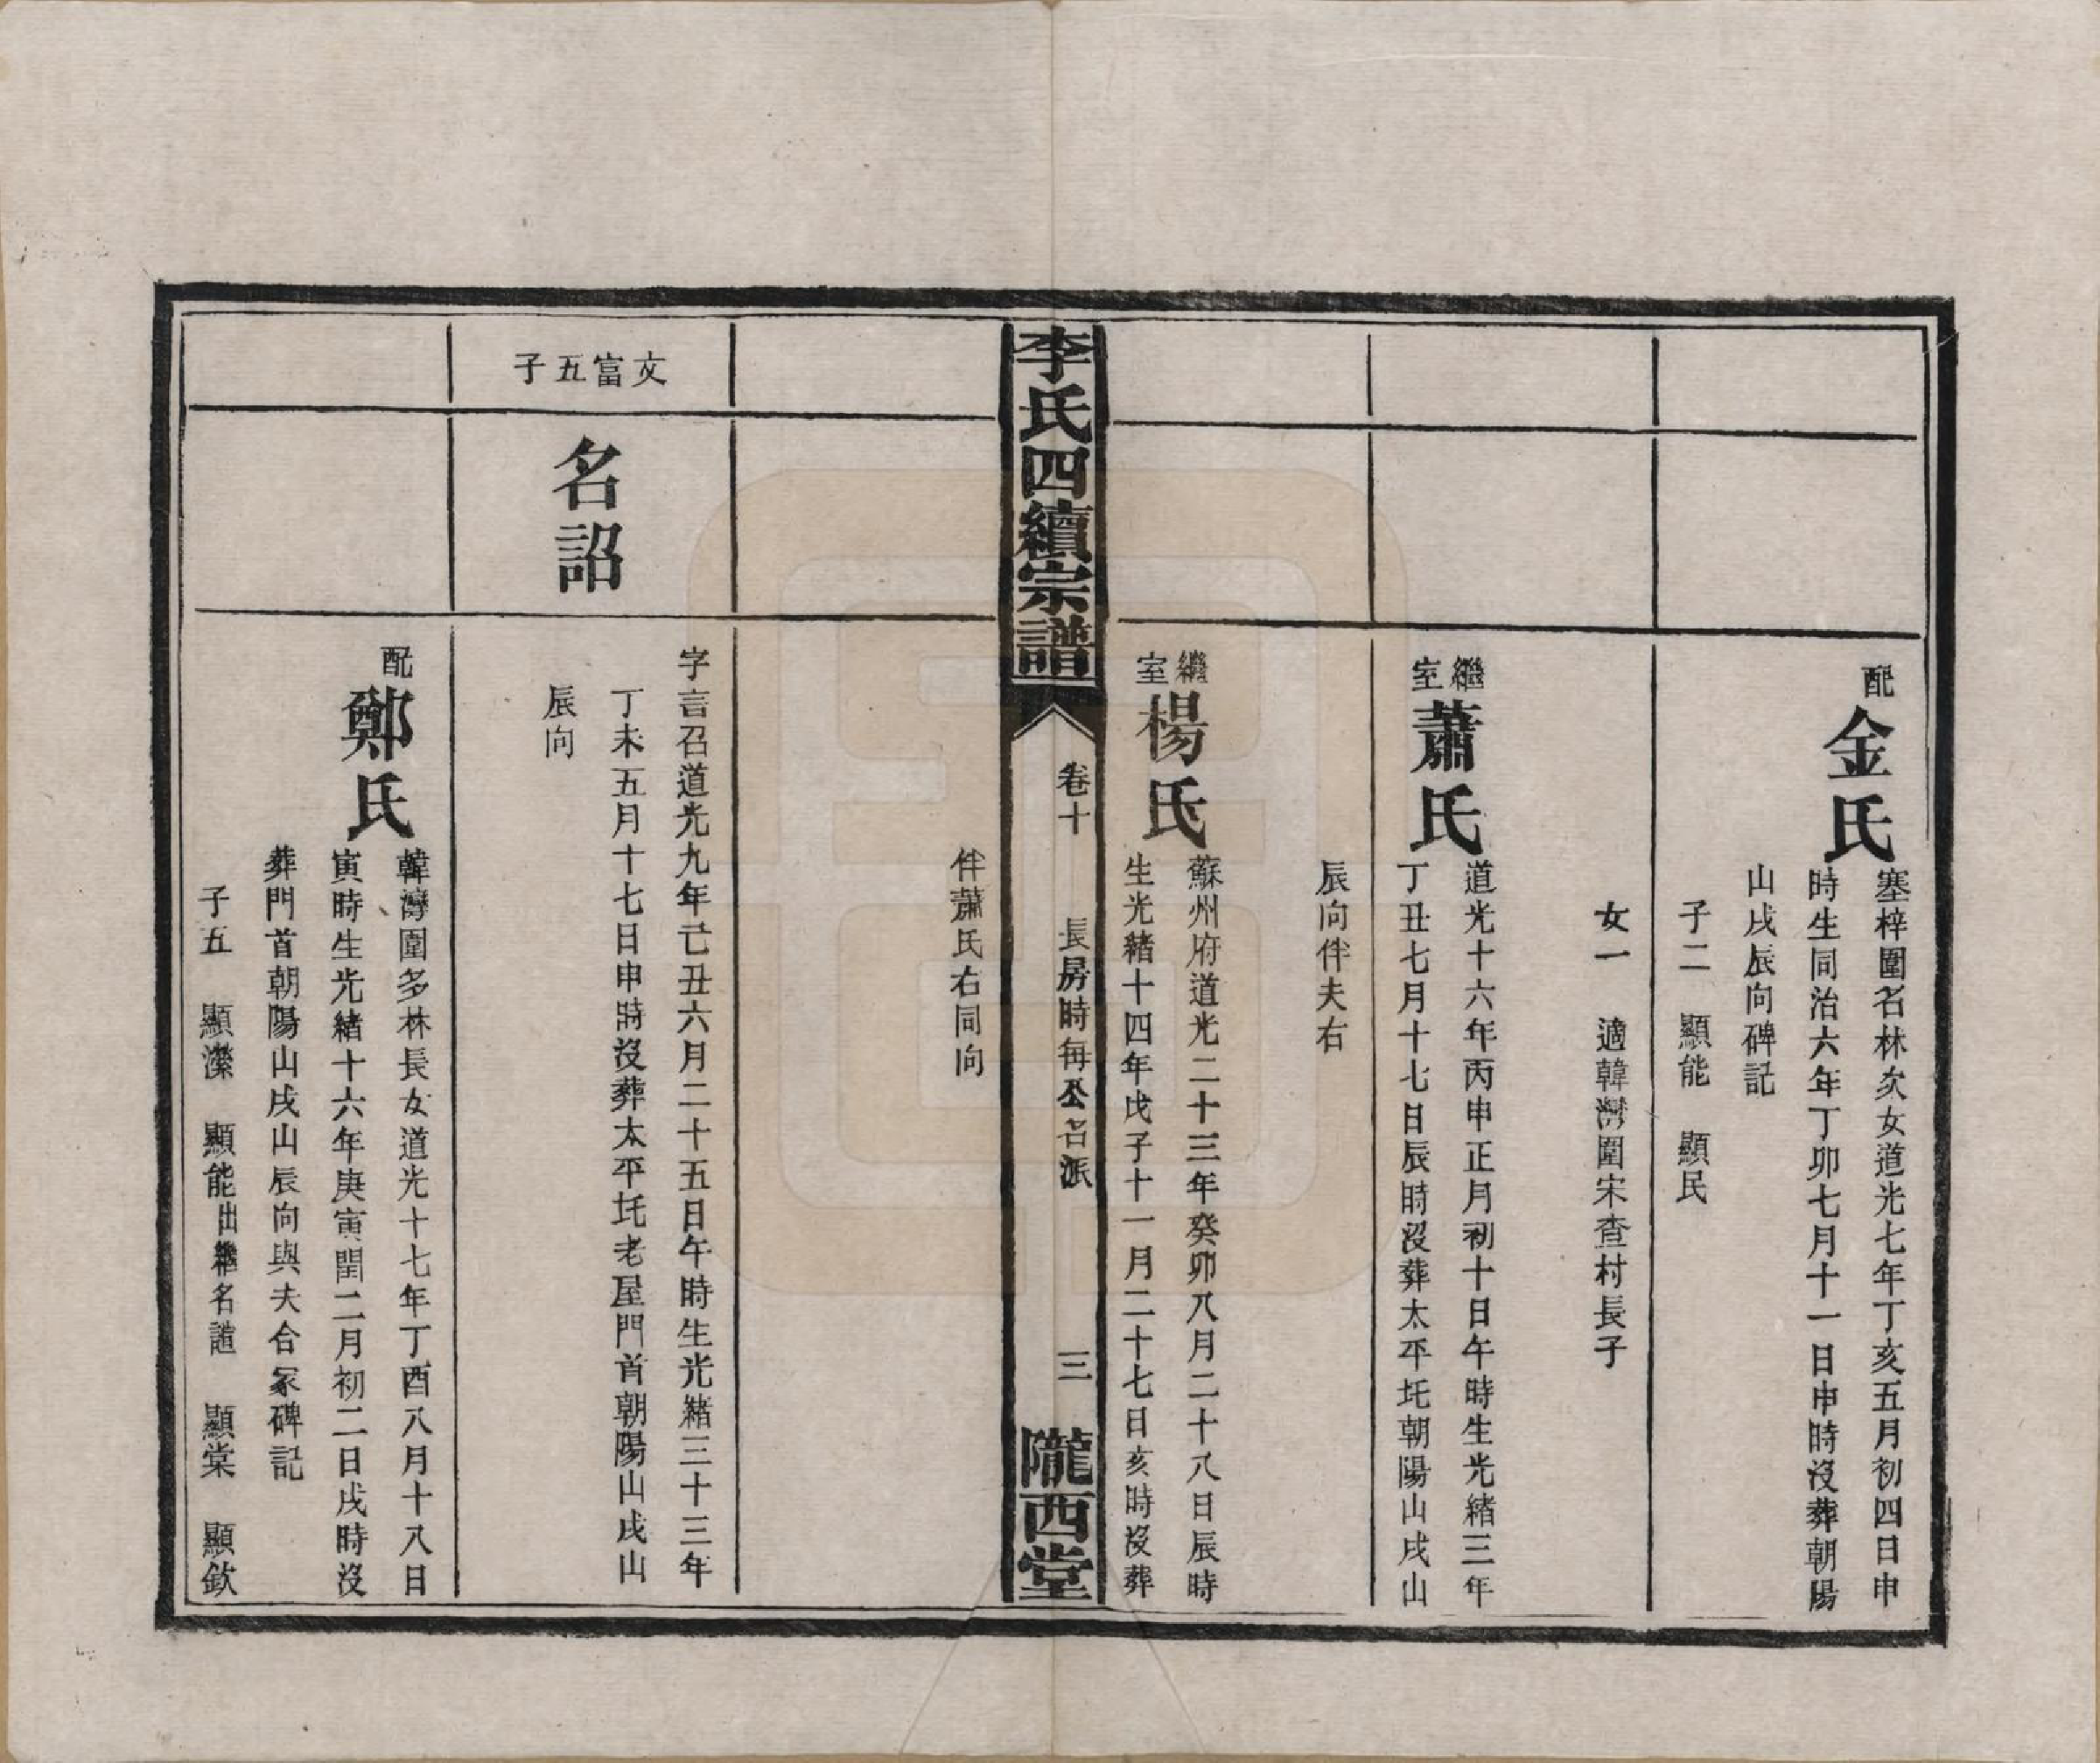 配金氏
塞梓圍名林次女道光七年丁亥五月初四日申
時生同治六年丁卯七月十一日申時沒葬朝陽
山戌辰向碑記
子二 顯能 顯民
女一 適韓灣圍宋查村長子
繼室蕭氏
道光十六年丙申正月初十日午時生光緒三年
丁丑七月十七日辰時沒葬太平圫朝陽山戌山
辰向伴夫右
繼室楊氏
蘇州府道光二十三年癸卯八月二十八日辰時
生光緒十四年戊子十一月二十七日亥時沒葬
李氏四續宗譜
卷十
長房時每公名派
三
隴西堂
伴蕭氏右同向
文富五子
名詔
字言召道光九年己丑六月二十五日午時生光緒三十三年
丁未五月十七日申時沒葬太平圫老屋門首朝陽山戌山
辰向
配鄭氏
韓灣圍多林長女道光十七年丁酉八月十八日
寅時生光緒十六年庚寅閏二月初二日戌時沒
葬門首朝陽山戌山辰向與夫合冢碑記
子五 顯濚 顯能出繼名 顯棠 顯欽